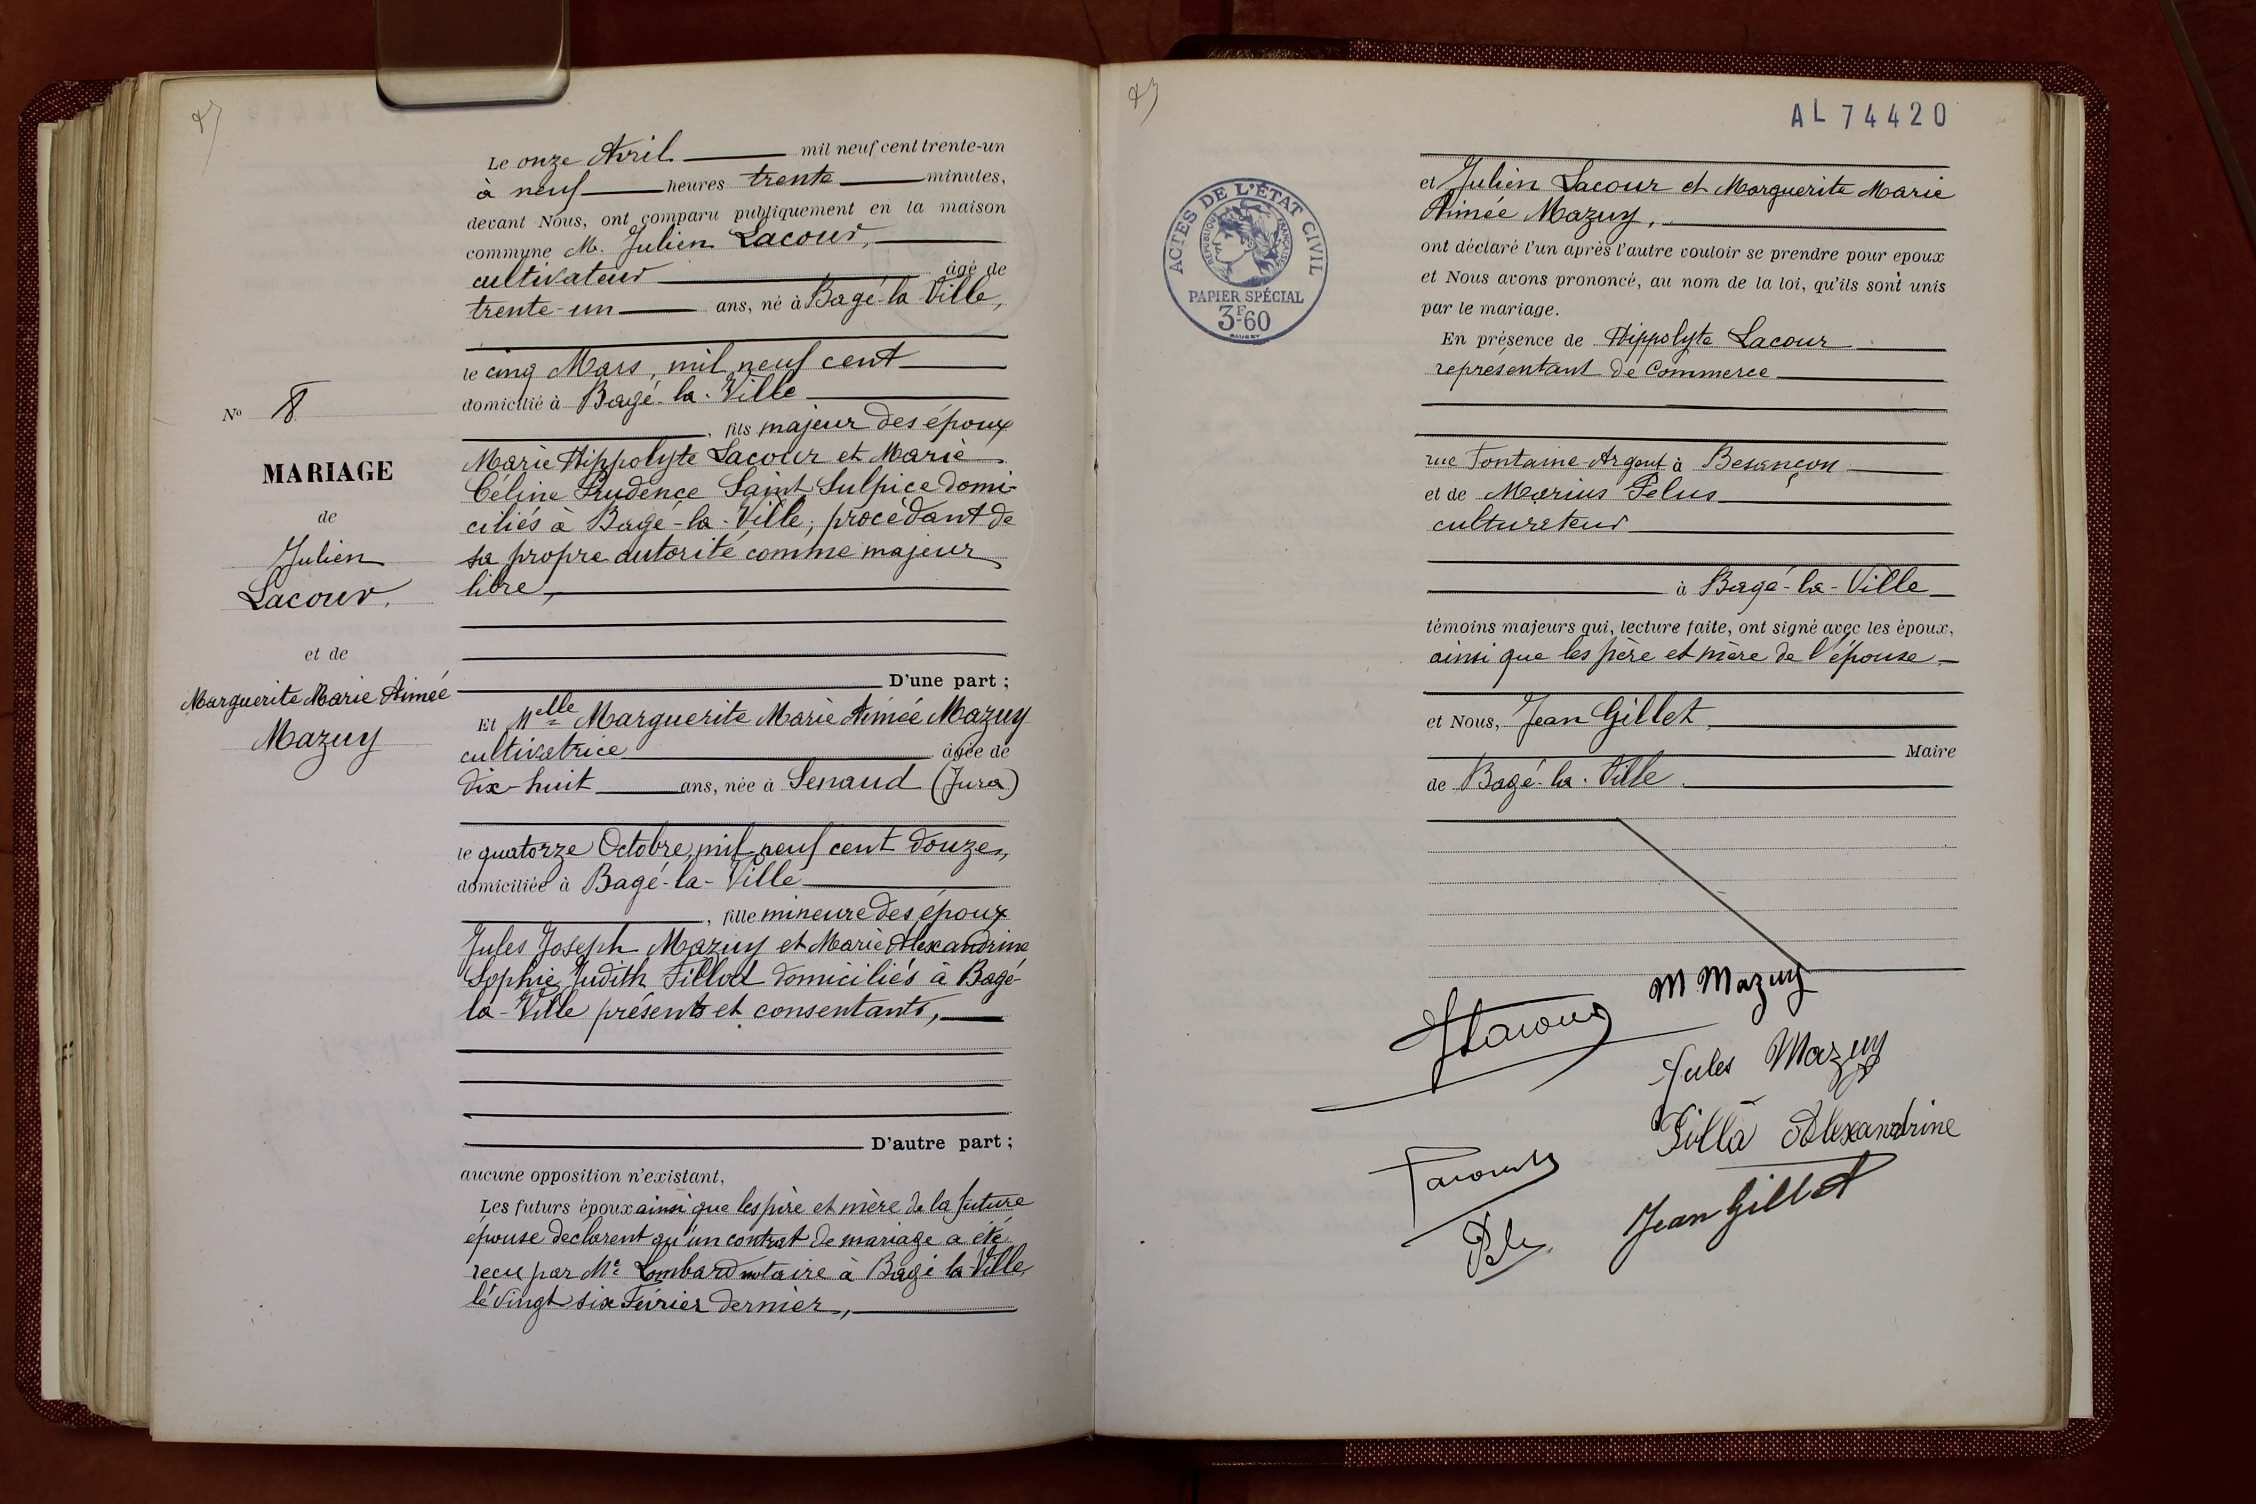 N° 8
MARIAGE
de
Julien
Lacour.
et de
Marguerite Marie Aimée
Mazuy
Le onze Avril mil neuf cent trente-un
à neuf heures trente minutes,
devant Nous, ont comparu publiquement en la maison
commune M. Julien Lacour,
cultivateur âgé de
trente-un ans, né à Bagé-la Ville,
le cinq Mars, mil neuf cent
domicilié à Bagé-la-Ville
, fils majeur des époux
Marie Hippolyte Lacour et Marie
Céline Prudence Saint Sulpice domi-
ciliés à Bagé-la-Ville; procédant de
sa propre autorité comme majeur
libre,
D'une part;
Et Melle Marguerite Marie Aimée Mazuy
cultivatrice âgée de
dix-huit ans, née à Senaud (Jura)
le quatorze Octobre, mil neuf cent douze,
domiciliée à Bagé-la-Ville
, fille mineure des époux
Jules Joseph Mazuy et Marie Alexandrine
Sophie Judith Tillod domiciliés à Bagé-
la-Ville présents et consentants,
D'autre part;
aucune opposition n'existant,
Les futurs époux ainsi que les père et mère de la future
épouse déclarent qu'un contrat de mariage a été
reçu par Me Lombard notaire à Bagé la Ville,
le vingt six Février dernier,
AL 74420
ACTES DE L'ÉTAT CIVIL
RÉPUBLIQUE FRANÇAISE
PAPIER SPÉCIAL
3F60
et Julien Lacour et Marguerite Marie
Aimée Mazuy,
ont déclaré l'un après l'autre vouloir se prendre pour époux
et Nous avons prononcé, au nom de la loi, qu'ils sont unis
par le mariage.
En présence de Hippolyte Lacour
représentant de Commerce
rue Fontaine-Argent à Besançon
et de Marius Pelus
cultivateur
à Bagé-la-Ville
témoins majeurs qui, lecture faite, ont signé avec les époux,
ainsi que les père et mère de l'épouse
et Nous, Jean Gillet
Maire
de Bagé-la-Ville.
J Lacour
M Mazuy
Jules Mazuy
Alexandrine
Jean Gillet